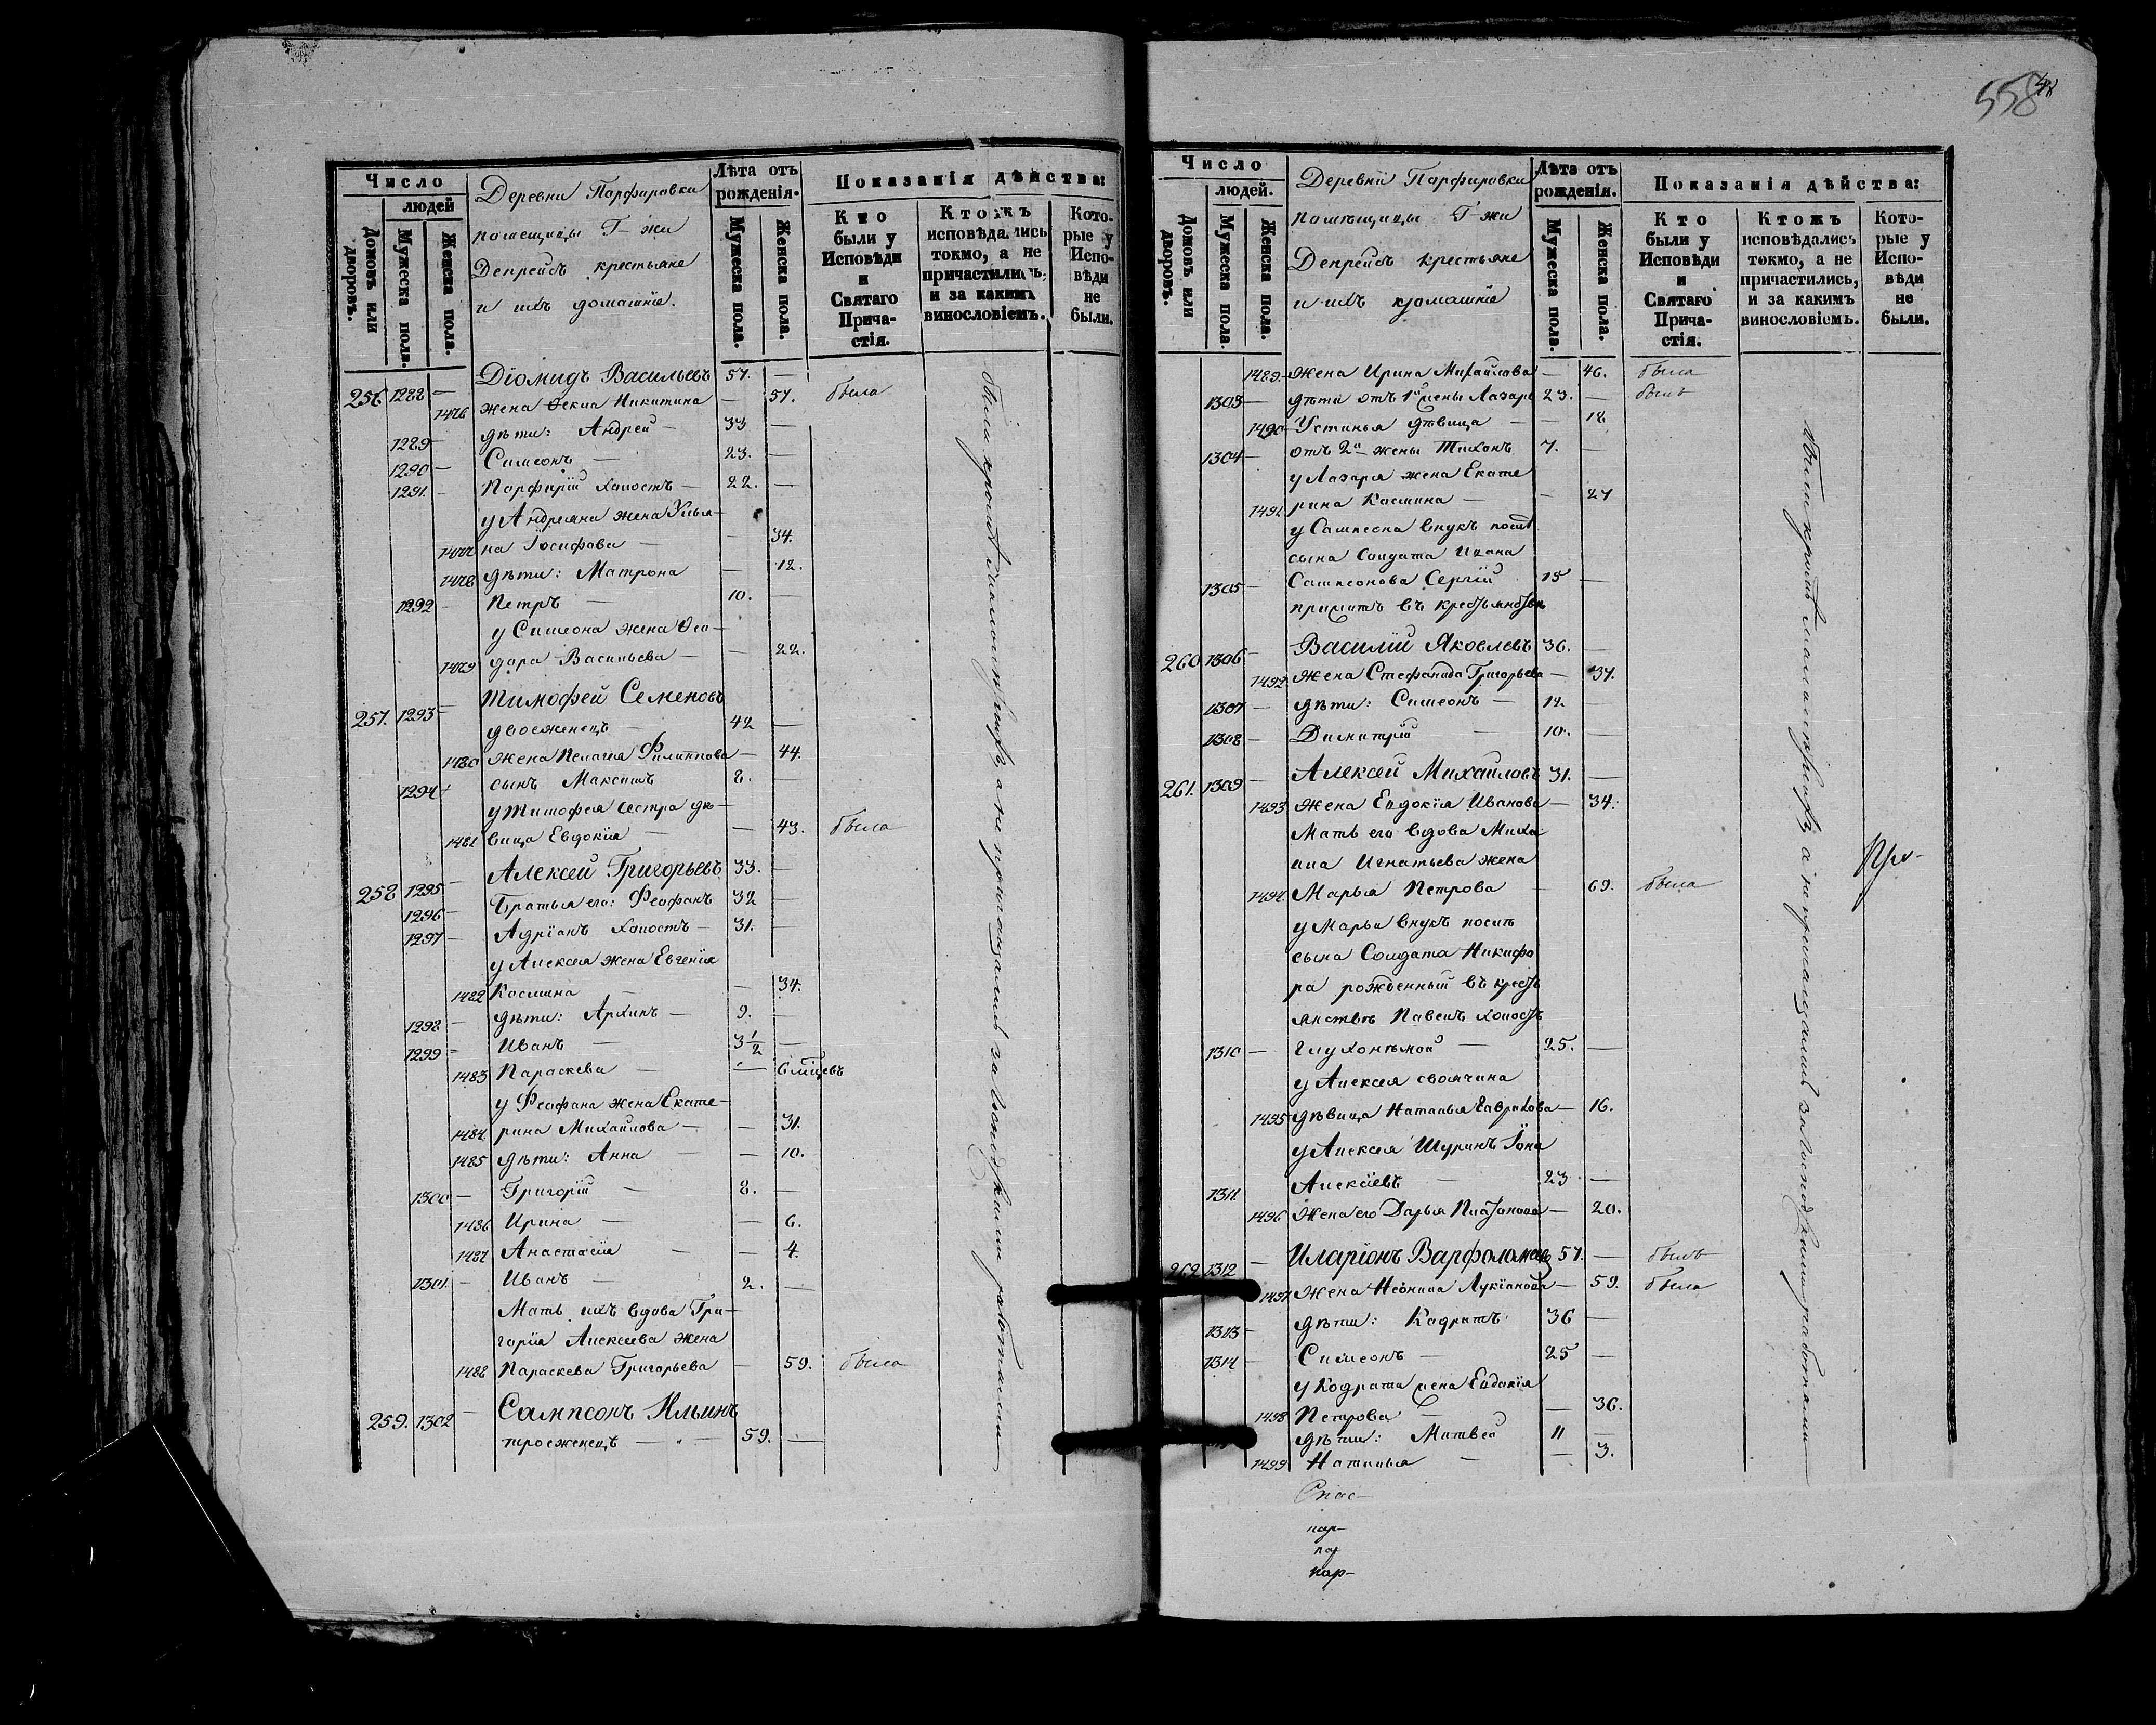 558
Число
людей
Домовъ или дворовъ.
Мужеска пола.
Женска пола.
Деревни Парфировки
помещицы Г-жи
Депрейсъ крестьяне
и ихъ домашніе.
Лѣта отъ рожденія.
Мужеска пола.
Женска пола.
Показанія дѣйства:
Кто были у Исповѣди и Святаго Причастія.
Ктожъ исповѣдались токмо, а не причастились, и за какимъ винословіемъ.
Которые у Исповѣди не были.
256 1288 — Діомидъ Васильевъ 57. —
1476 жена Ѳекла Никитина — 57. была
1289 — дѣти: Андрей — 33 —
1290 — Симеонъ — 23. —
1291. — Порфирій холостъ — 22. —
у Андреяна жена Улья-
1477 на Іосифова — — 34.
1478 дѣти: Матрона — 12.
1292 — Петръ — 10. —
у Симеона жена Ѳео-
1479 дора Васильева — — 22.
257. 1293 — Тимофей Семеновъ
двоеженецъ — 42 —
1480 жена Пелагея Филиппова — 44.
1294 — сынъ Максимъ 8. —
у Тимофея сестра дѣ-
1481 вица Евдокія — — 43. была
258 1295 — Алексей Григорьевъ 33. —
1296 — Братья его: Феофанъ 32 —
1297 — Адріанъ холостъ — 31. —
у Алексея жена Евгенія
1482 Космина — — 34.
1298 — дѣти: Архипъ — 9. —
1299 — Иванъ — 3 1/2 —
1483 Параскева — — 6 мѣцевъ
у Феофана жена Екате-
1484. рина Михайлова — — 31.
1485 дѣти: Анна — — 10.
1300 — Григорій — 8. —
1486 Ирина — — 6.
1487 Анастасія — — 4.
1301. — Иванъ — 2. —
Мать ихъ вдова Гри-
горія Алексеева жена
1488 Параскева Григорьева — 59. была
259. 1302 — Сампсонъ Ильинъ
троеженецъ — 59. —
были кромѣ малолетнихъ, а не причащались за господскими работами
Число
людей.
Домовъ или дворовъ.
Мужеска пола.
Женска пола.
Деревни Парфировки
помѣщицы Г-жи
Депрейсъ крестьяне
и ихъ домашніе
Лѣта отъ рожденія.
Мужеска пола.
Женска пола.
Показанія дѣйства:
Кто были у Исповѣди и Святаго Причастія.
Ктожъ исповѣдались токмо, а не причастились, и за какимъ винословіемъ.
Которые у Исповѣди не были.
1489 — жена Ирина Михайлова — 46. была
1303 — дѣти отъ 1й жены Лазарь 23. — былъ
1490 — Устинья дѣвица — — 18
1304 — отъ 2й жены Тихонъ 7. —
у Лазаря жена Екате
1491 рина Космина — — 27
у Сампсона внукъ послѣ
сына Солдата Ивана
1305 — Сампсонова Сергій 15 —
прижитъ въ крестьянствѣ
260 1306 — Василій Яковлевъ 36. —
1492 жена Стефанида Григорьева — 37.
1307 — дѣти: Симеонъ — 12. —
1308 — Димитрій 10. —
261. 1309 — Алексей Михайловъ 31. —
1493 жена Евдокія Иванова — 34.
Мать его вдова Миха
ила Игнатьева жена
1494. Марья Петрова — 69. была
у Марьи внукъ послѣ
сына Солдата Никифо
ра рожденный въ кресть
янствѣ Павелъ холостъ
1310 — глухонѣмой — 25. —
у Алексея своячина
1495 дѣвица Наталья Гаврилова — 16.
у Алексея Шуринъ Іона
1311. Алексіевъ — 23 —
1496 жена его Дарья Платонова — 20.
262 1312 — Иларіонъ Варфоломеевъ 57. — былъ
1497 жена Неонила Лукіанова — 59. была
1313 — дѣти: Кодратъ 36 —
1314 — Симеонъ — 25 —
у Кодрата жена Евдокія
1498 Петрова — — 36.
дѣти: Матвей 11 —
1499 Наталья — — 3.
были кромѣ малолетнихъ, а не причащались за господскими работами
При-
Спас-
пар-
пар-